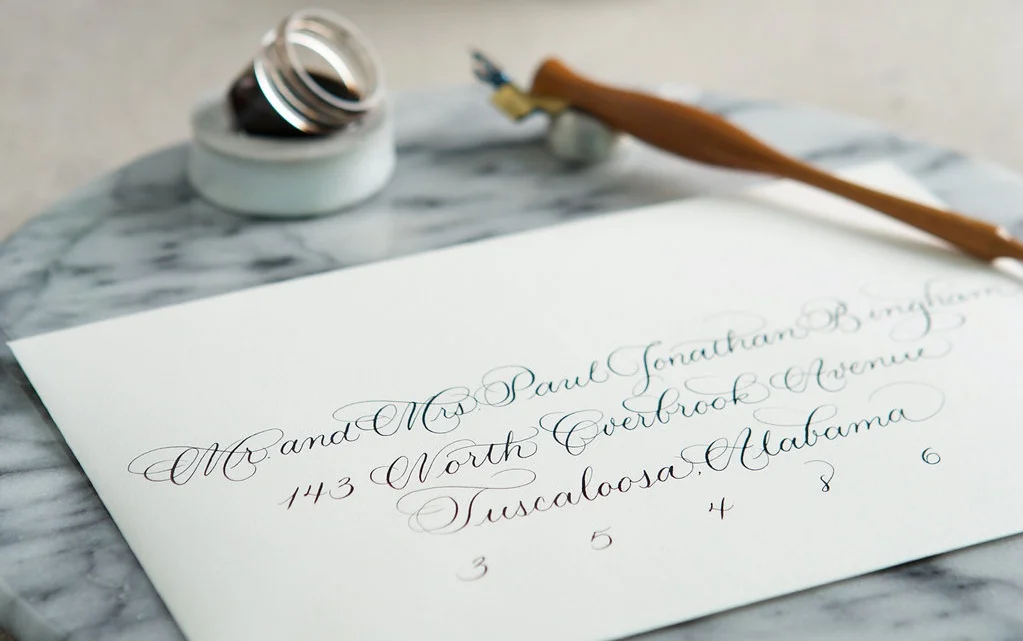 Mr. and Mrs. Paul Jonathan Bingham
143 North Everbrook Avenue
Tuscaloosa, Alabama
3 5 4 8 6